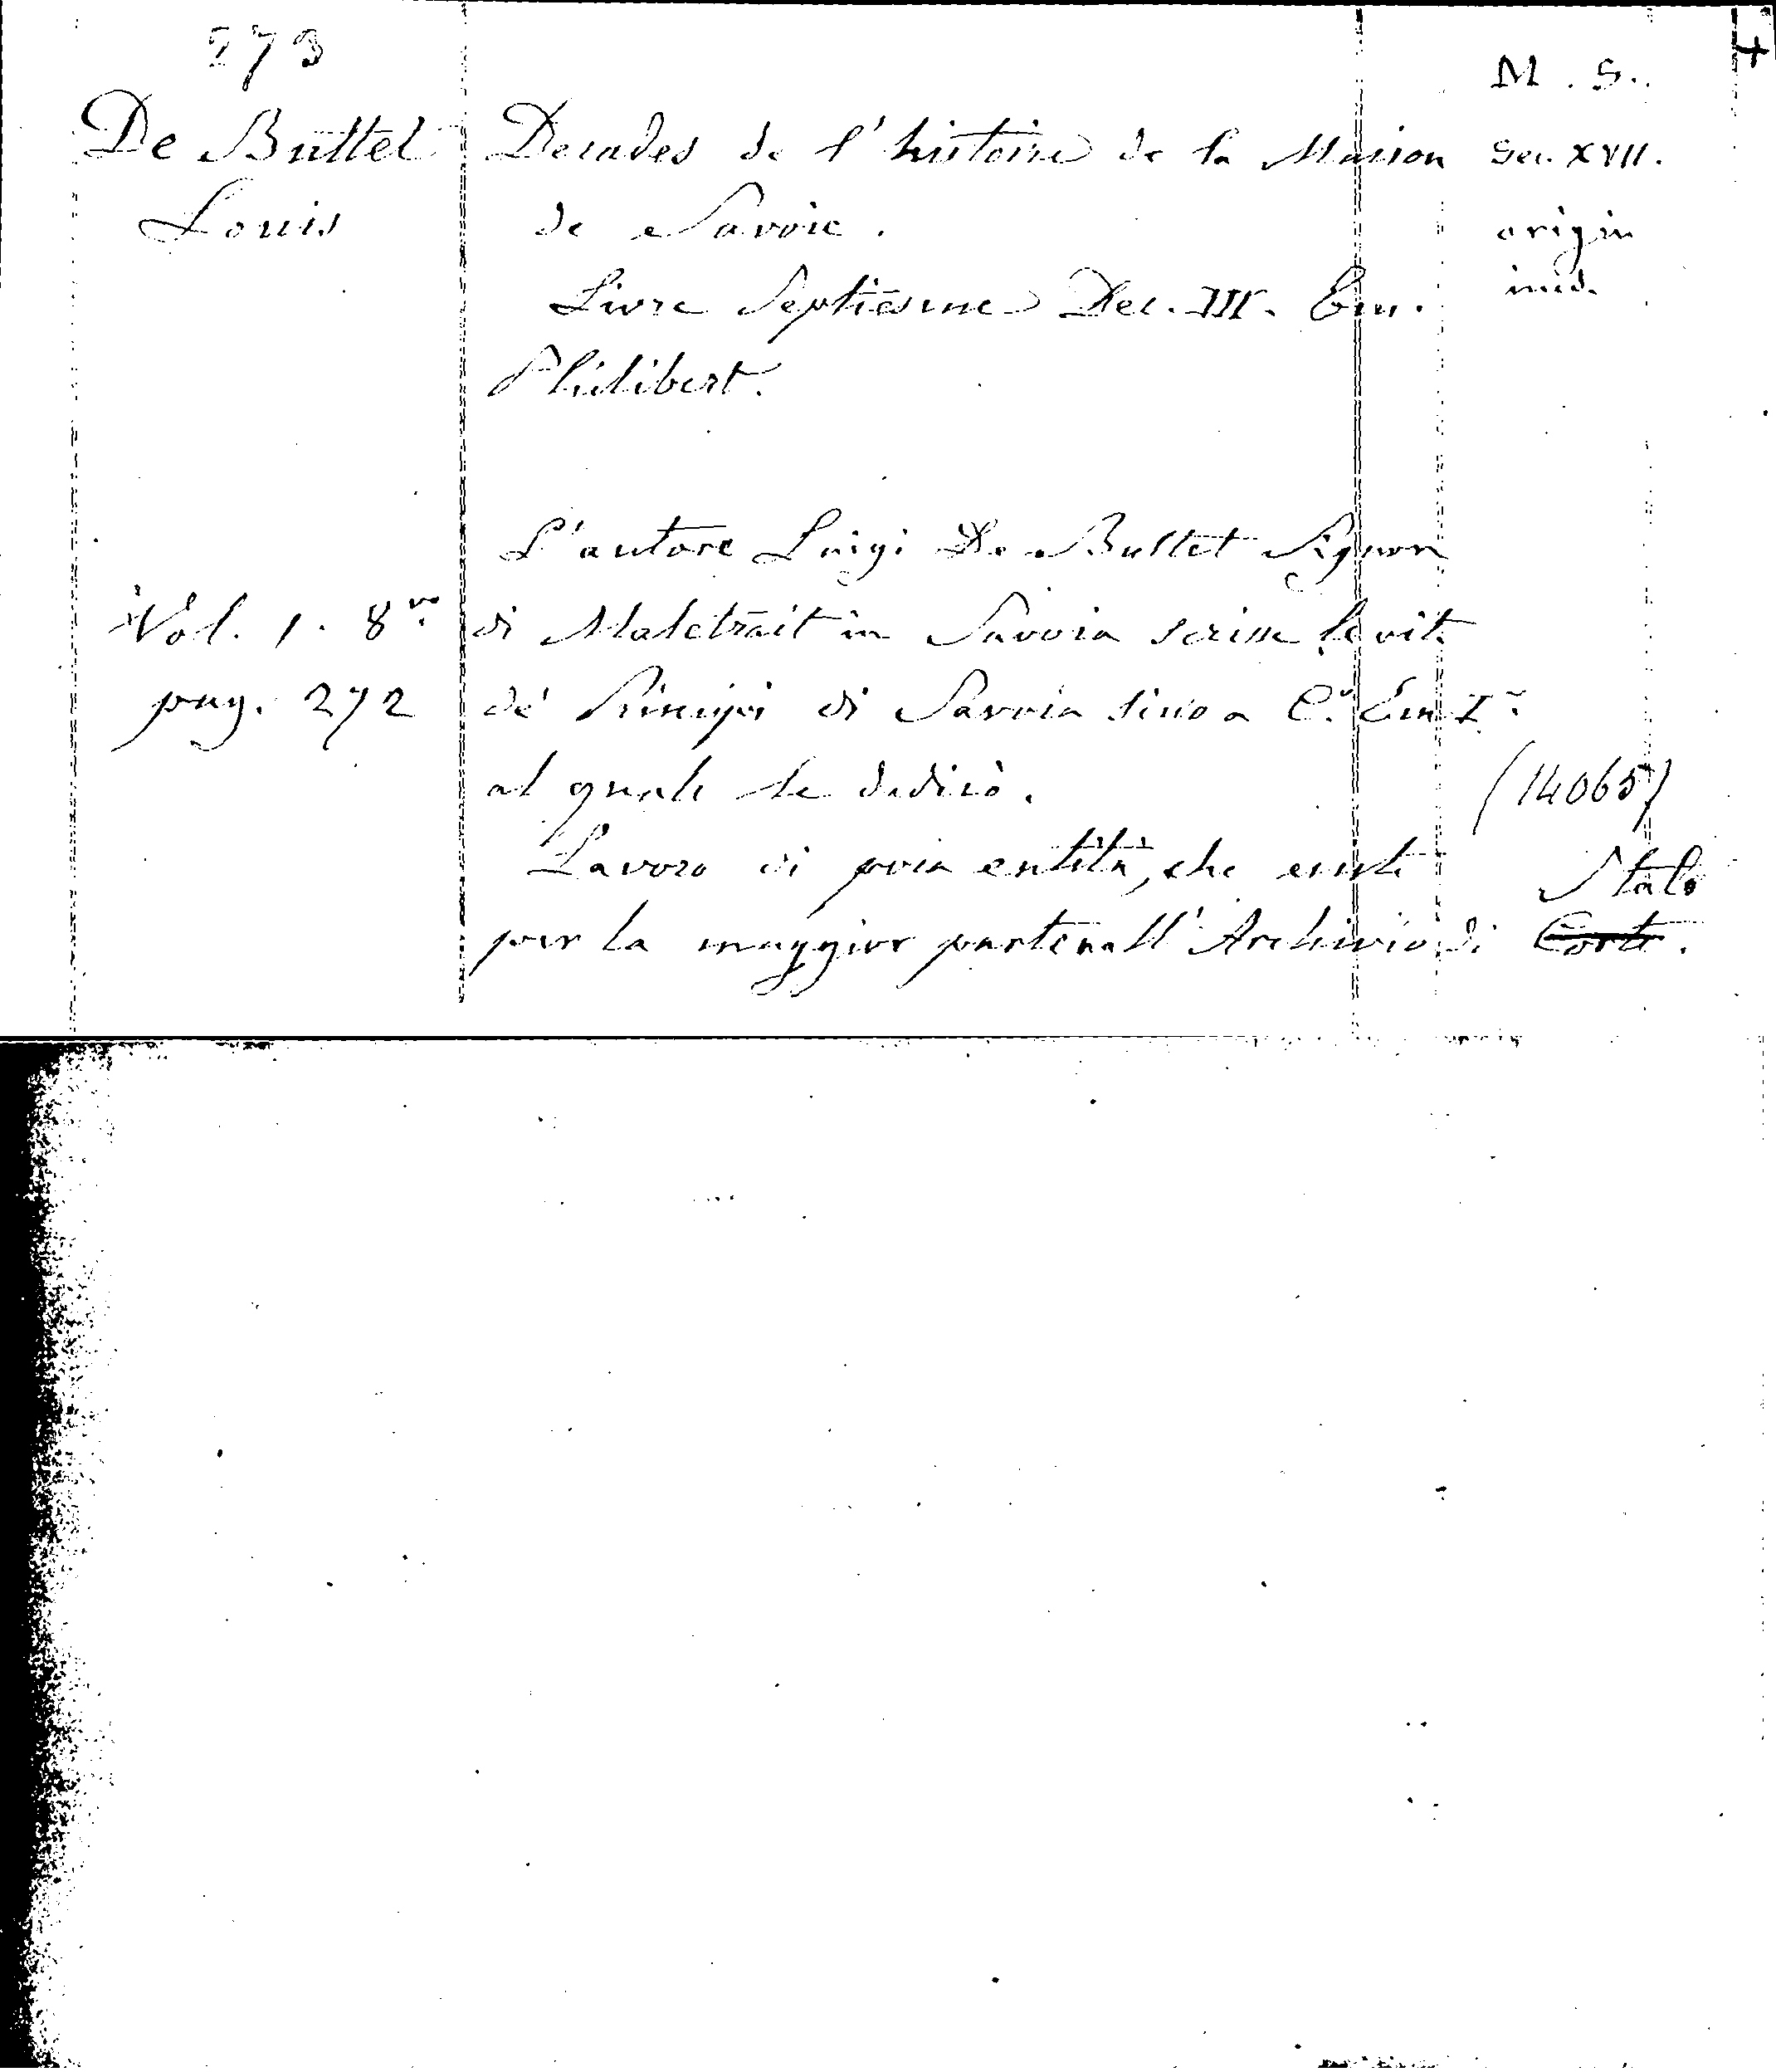 273
De Buttet
Louis
Vol. 1. 8vo.
pag. 272
Decades de l'histoire de la Maison
de Savoie.
Livre Septiesme Dec. III. Em.
Philibert.
L'autore Luigi De Buttet Signor
di Maletrait in Savoia scrisse le vite
de' Principi di Savoia sino a C.o Em. I.o
al quale le dedicò.
Lavoro di poca entità, che esiste
per la maggior parte nell' Archivio di Stato
Corte.
M. S.
Sec. XVII.
origin
ined.
(14065)